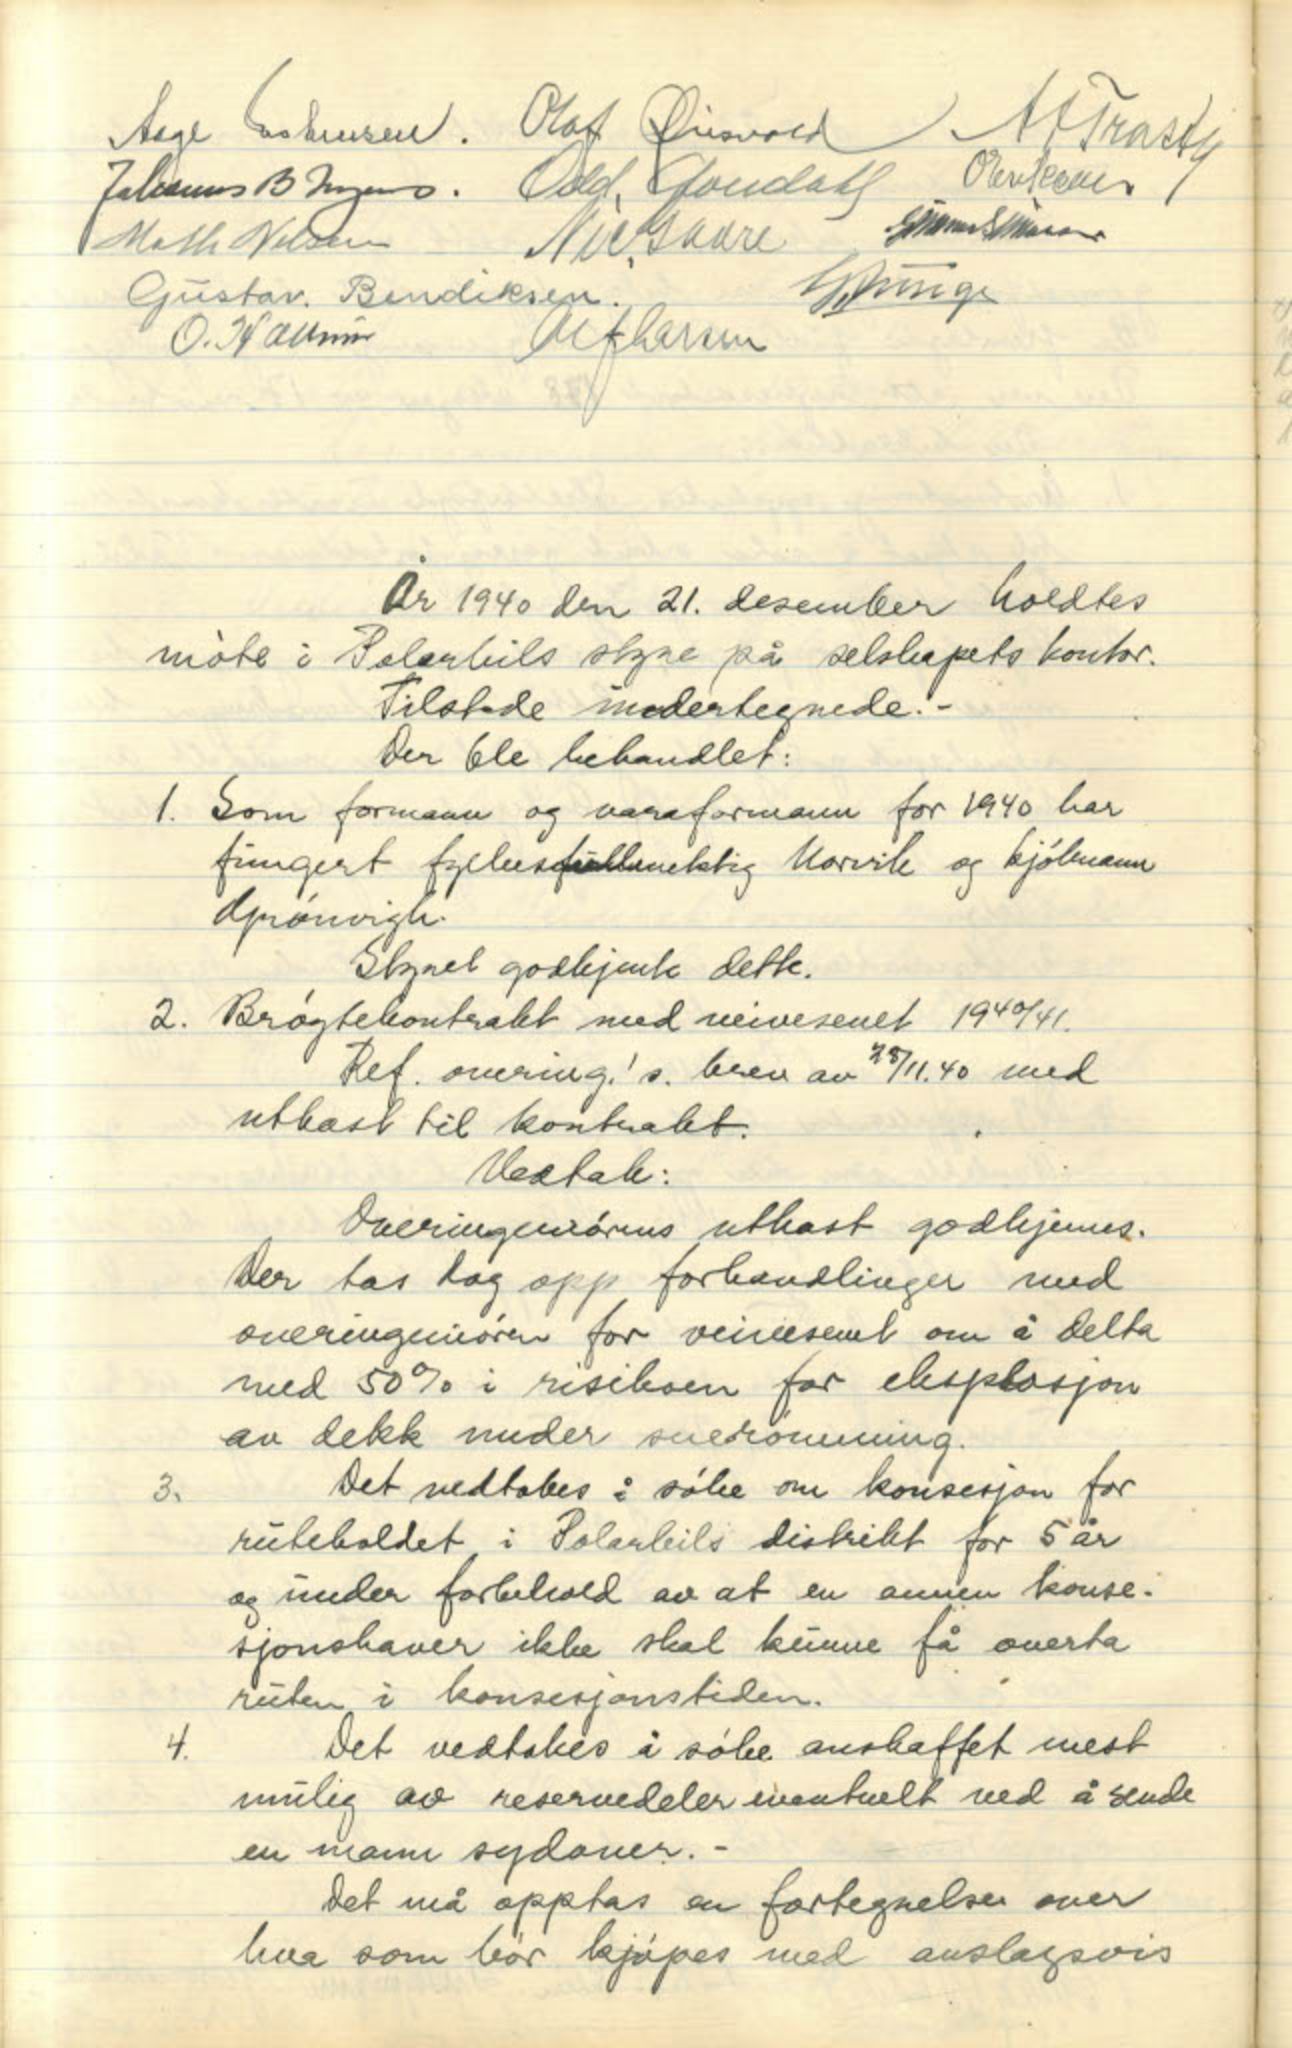 Aage . Olaf
Johannes B Odd.
Nilsen Nic. Skåre
Gustav. Bendiksen.
O. Alf Larsen
År 1940 den 21. desember holdtes
møte i Polarbils styre på selskapets kontor.
Tilstede undertegnede.-
Der ble behandlet:
1. Som formann og varaformann for 1940 har
fungert fylkesfullmektig Norvik og kjøbmann
Grønvigh.
Styret godkjente dette.
2. Brøytekontrakt med veivesenet 1940/41.
Ref. overing.'s. brev av 28/11.40 med
utkast til kontrakt.
Vedtak:
Overingeniørens utkast godkjennes.
Der tas dog opp forhandlinger med
overingeniøren for veivesenet om å delta
med 50% i risikoen for eksplosjon
av dekk under snerømning.
3. Det vedtokes å søke om konsesjon for
ruteholdet i Polarbils distrikt for 5 år
og under forbehold av at en annen konse-
sjonshaver ikke skal kunne få overta
ruten i konsesjonstiden.
4. Det vedtokes å søke anskaffet mest
mulig av reservedeler eventuelt ved å sende
en mann sydover.-
Det må opptas en fortegnelse over
hva som bør kjøpes med anslagsvis